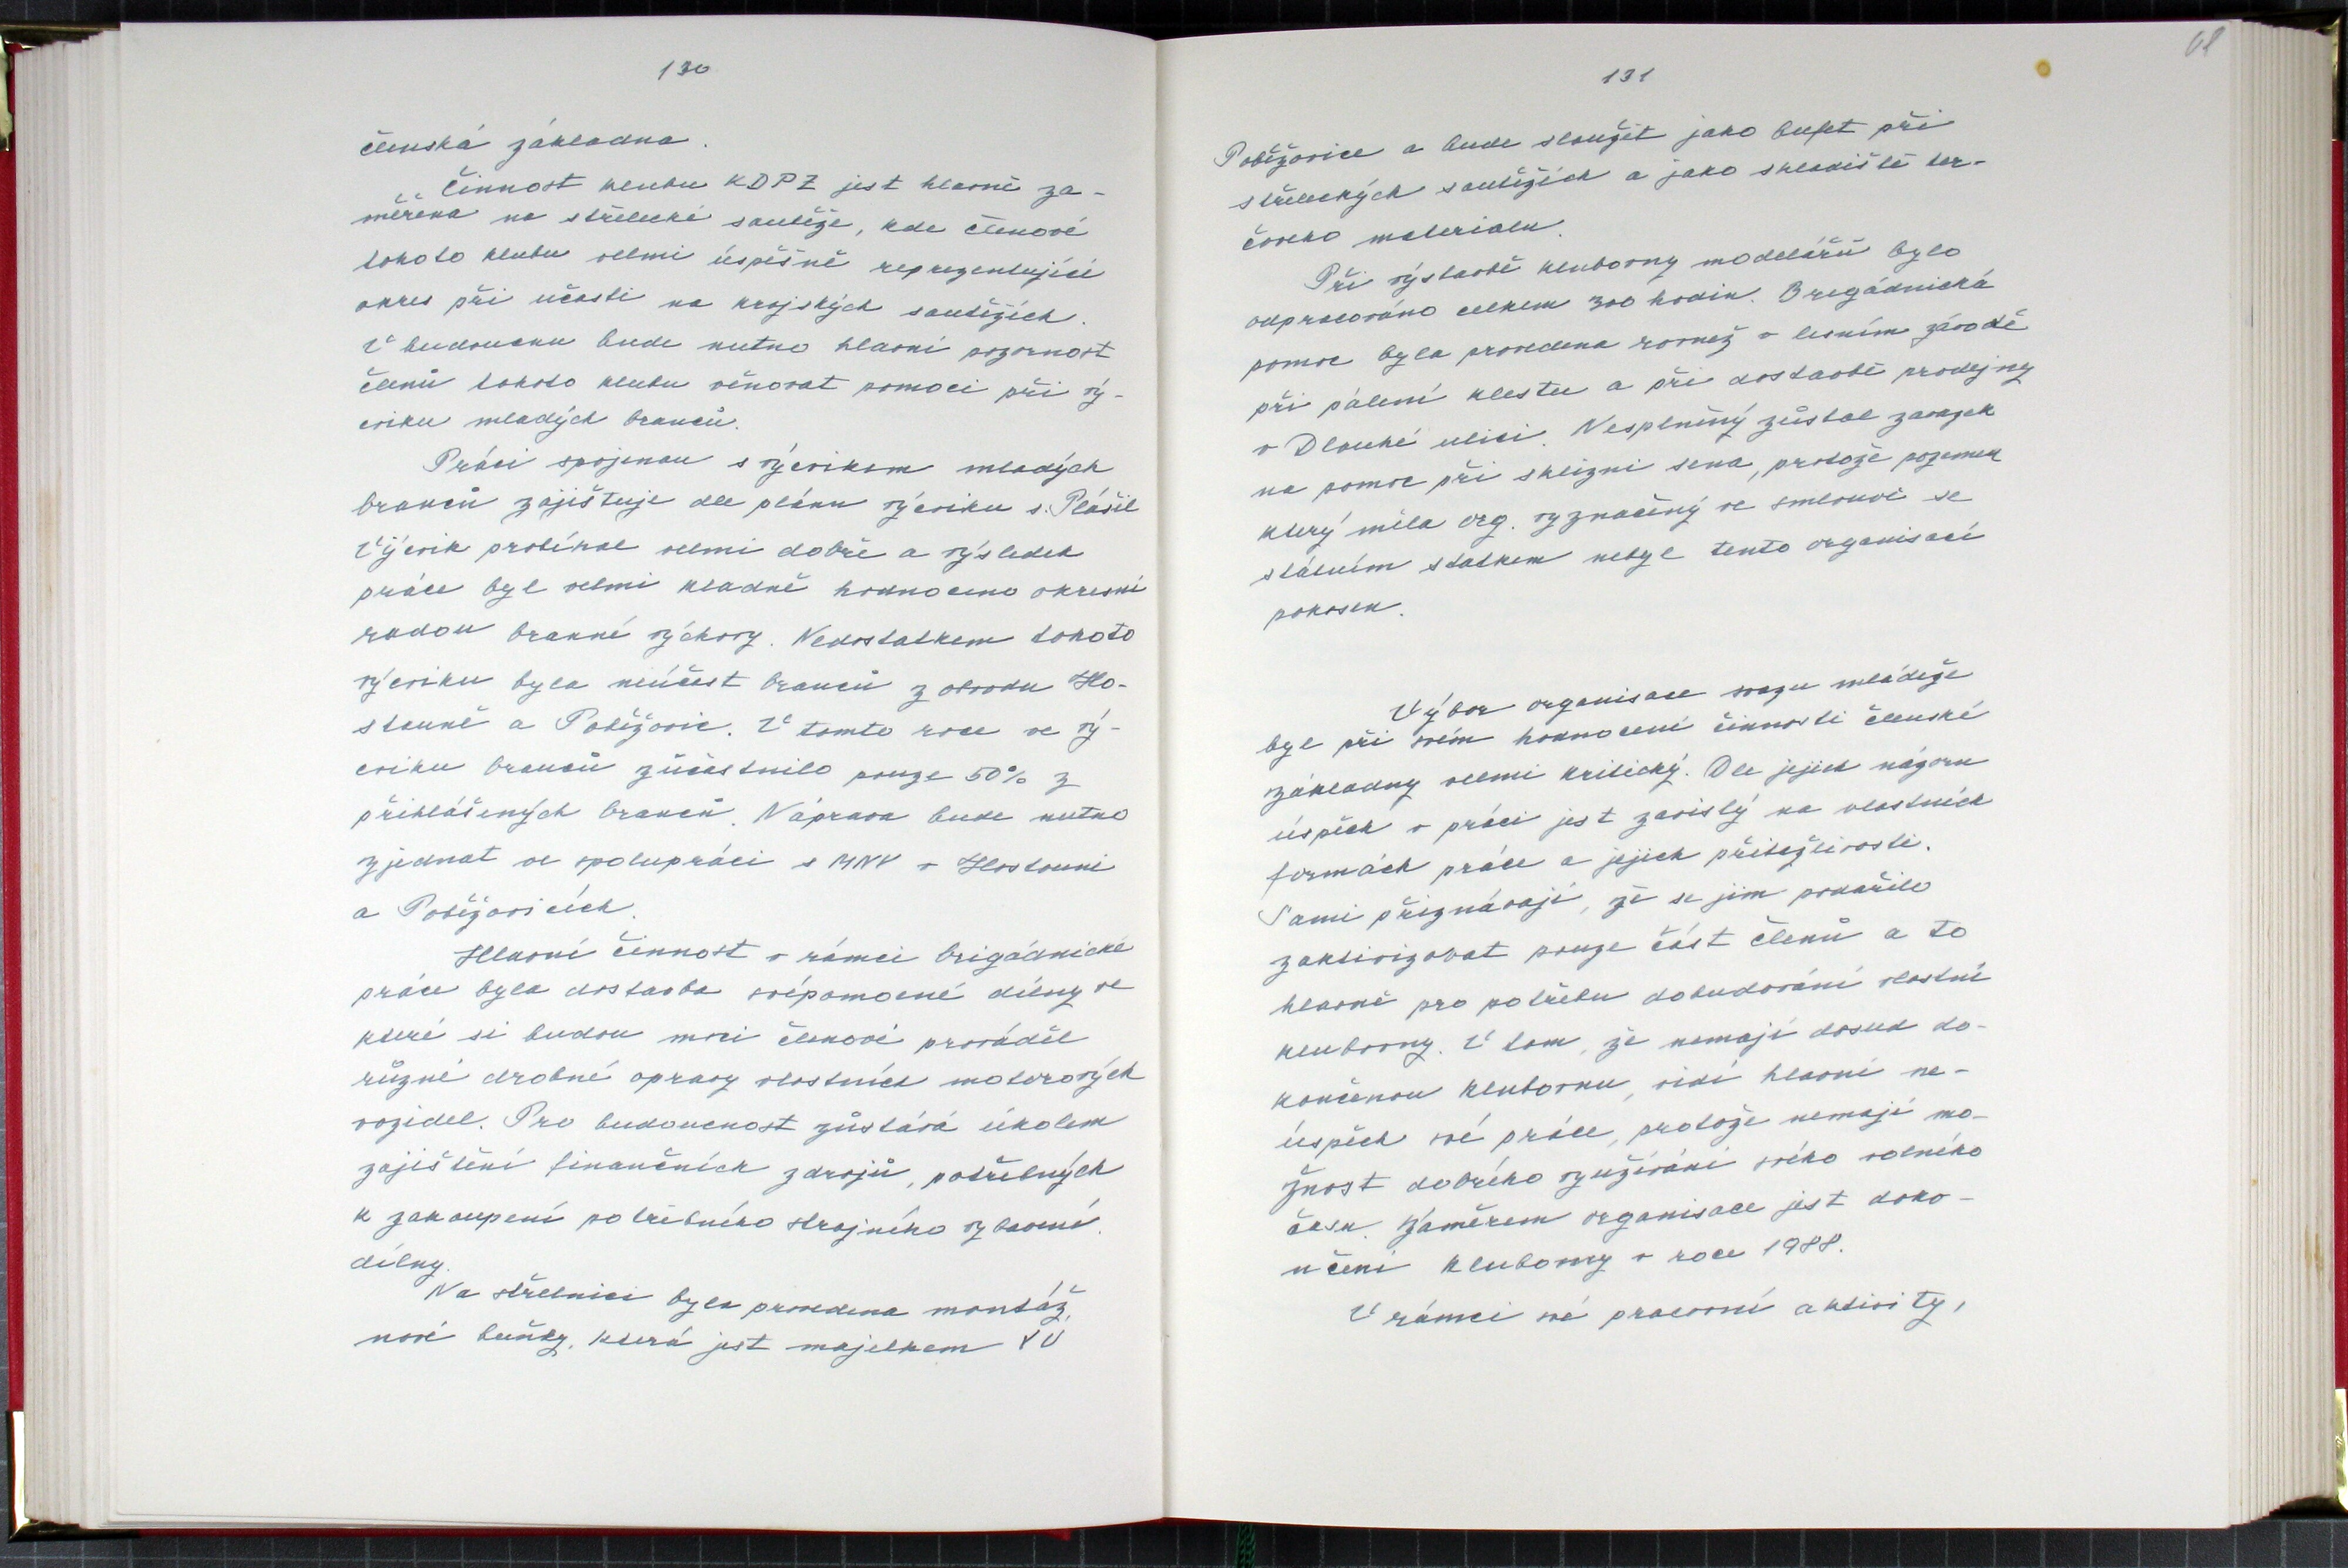 130
členská základna.
Činnost klubu KDPZ jest hlavně za-
měřena na střelecké soutěže, kde členové
tohoto klubu velmi úspěšně reprezentující
okres při učasti na krajských soutěžích.
V budoucnu bude nutno hlavní pozornost
členů tohoto klubu věnovat pomoci při vý-
cviku mladých branců.
Práci spojenou s výcvikem mladých
branců zajištuje dle plánu výcviku s. Plášil
Výcvik probíhal velmi dobře a výsledek
práce byl velmi kladně hodnoceno okresní
radou branné výchovy. Nedostatkem tohoto
výcviku byla neúčast branců z obvodu Ho-
stouně a Poběžovic. V tomto roce se vý-
cviku branců zůčastnilo pouze 50% z
přihlášených branců. Náprava bude nutno
zjednat ve spolupráci s MNV v Hostouni
a Poběžovicích.
Hlavní činnost v rámci brigádnické
práce byla dostavba svépomocné dílny ve
které si budou moci členové provádět
různé drobné opravy vlastních motorových
vozidel. Pro budoucnost zůstává úkolem
zajištění finančních zdrojů, potřebných
k zakoupení potřebného strojního vybavení
dílny.
Na střelnici byla provedena montáž
nové buňky, která jest majetkem VÚ
131
68
Poběžovice a bude sloužit jako bufet při
střeleckých soutěžích a jako skladiště ter-
čového materialu.
Při výstavbě klubovny modelářů bylo
odpracováno celkem 300 hodin. Bregádnická
pomoc byla provedena rovnež v lesním závodě
při pálení klestu a při dostavbě prodejny
v Dlouhé ulici. Nesplněný zůstal zavazek
na pomoc při sklizni sena, protože pozemek
který měla org. vyznačený ve smlouvě se
státním statkem nebyl tento organisací
pokosen.
Výbor organisace svazu mládeže
byl při svém hodnocení činnosti členské
základny velmi kritický. Dle jejich názoru
úspěch v práci jest zavislý na vlastních
formách práce a jejich přitežlivosti.
Sami přiznávají, že se jim podařilo
zaktivizovat pouze část členů a to
hlavně pro potřebu dobudování vlastní
klubovny. V tom, že nemají dosud do-
končenou klubovnu, vidí hlavní ne-
úspěch své práce, protože nemají mo-
žnost dobrého využívání svého volného
času. Záměrem organisace jest doko-
nčení klubovny v roce 1988.
V rámci své pracovní aktivity,